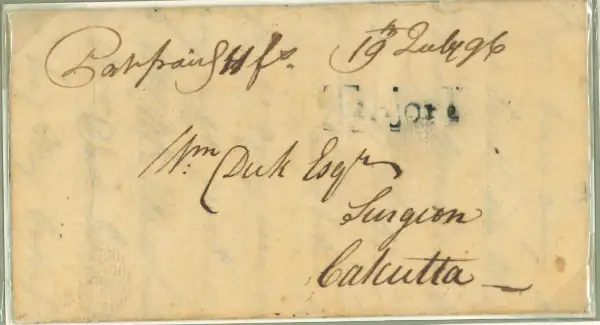 Post paid 11 fs. 19th July 96
Tanjore
Wm Dick Esqr
Surgeon
Calcutta